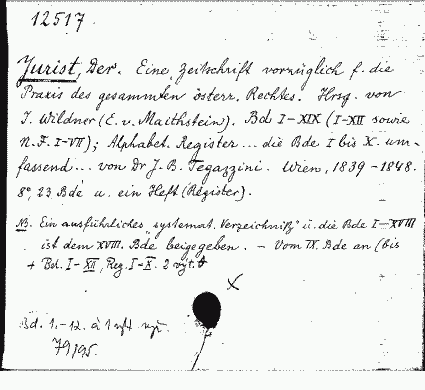 12517
Jurist, Der. Eine Zeitschrift vorzüglich f. die
Praxis des gesammten österr. Rechtes. Hrsg. von
I. Wildner (E. v. Maithstein). Bd I–XIX (I–XII sowie
N.F. I–VII); Alphabet. Register ... die Bde I bis X. um-
fassend ... von Dr J. B. Tegazzini. Wien, 1839–1848.
8°, 23 Bde u. ein Heft (Register).
NB. Ein ausführliches "systemat. Verzeichniß" ü. die Bde I–XVIII
ist dem XVIII. Bde beigegeben. – Vom IX. Bde an (bis
+ Bd. I–XII, Reg. I–X. 2
x
Bd. 1.–12. à 1
79195.